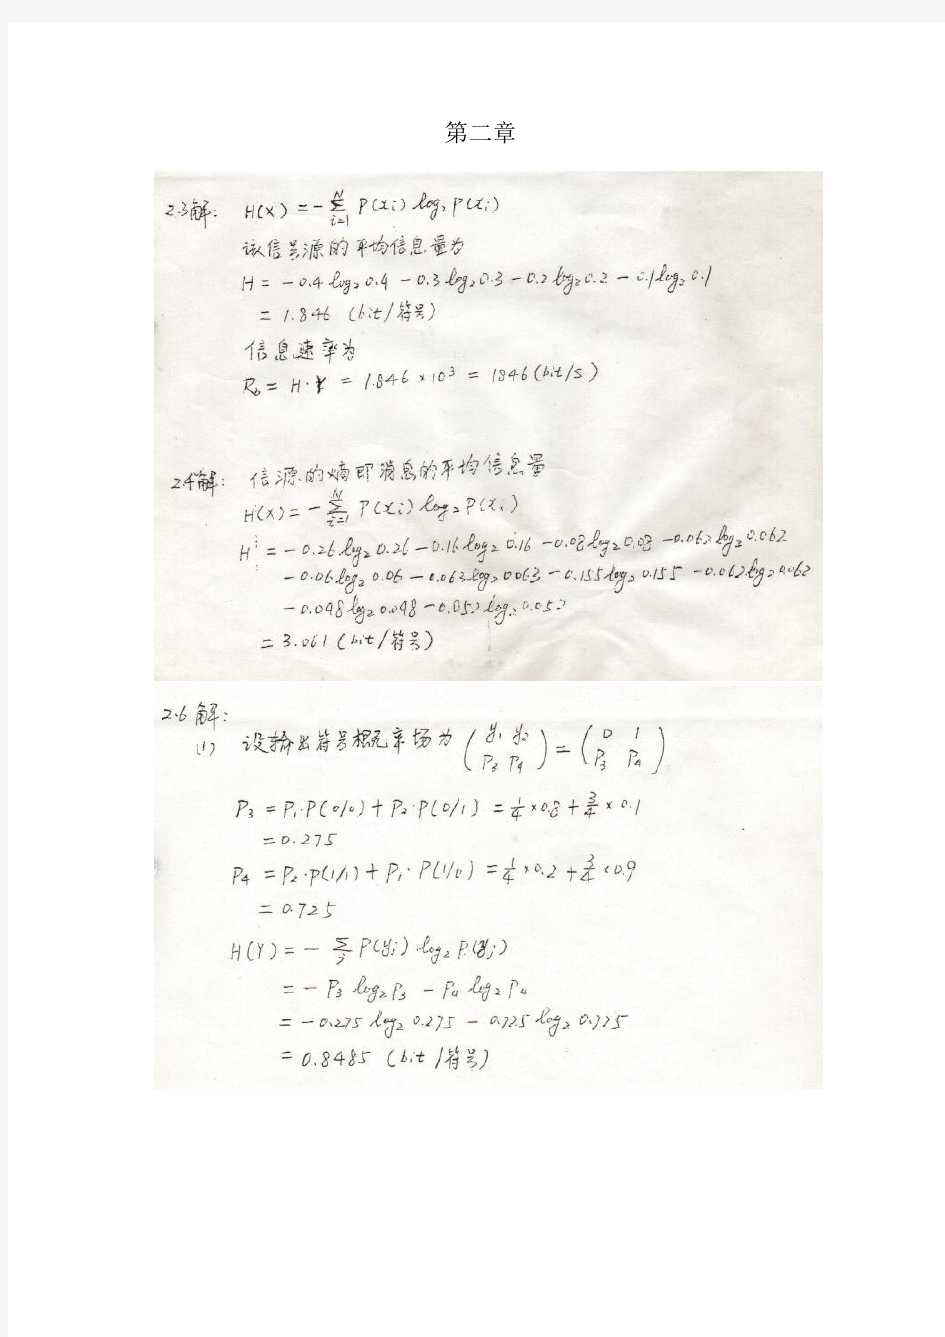 第二章
2.3解: H(X) = -∑_{i=1}^{N} P(xi) log₂ P(xi)
该信号源的平均信息量为
H = -0.4 log₂ 0.4 - 0.3 log₂ 0.3 - 0.2 log₂ 0.2 - 0.1 log₂ 0.1
= 1.846 (bit/符号)
信息速率为
R_b = H·r = 1.846 × 10³ = 1846 (bit/s)
2.4解: 信源的熵即消息的平均信息量
H(X) = -∑_{i=1}^{N} P(xi) log₂ P(xi)
H = -0.26 log₂ 0.26 - 0.16 log₂ 0.16 - 0.08 log₂ 0.08 - 0.062 log₂ 0.062
-0.06 log₂ 0.06 - 0.063 log₂ 0.063 - 0.155 log₂ 0.155 - 0.062 log₂ 0.062
-0.048 log₂ 0.048 - 0.052 log₂ 0.052
= 3.061 (bit/符号)
2.6解:
(1) 设输出符号概率场为 (y₁ y₂ / P₃ P₄) = (0 1 / P₃ P₄)
P₃ = P₁·P(0/0) + P₂·P(0/1) = 1/4 × 0.8 + 3/4 × 0.1
= 0.275
P₄ = P₂·P(1/1) + P₁·P(1/0) = 1/4 × 0.2 + 3/4 × 0.9
= 0.725
H(Y) = -∑_j P(yj) log₂ P(yj)
= -P₃ log₂ P₃ - P₄ log₂ P₄
= -0.275 log₂ 0.275 - 0.725 log₂ 0.725
= 0.8485 (bit/符号)